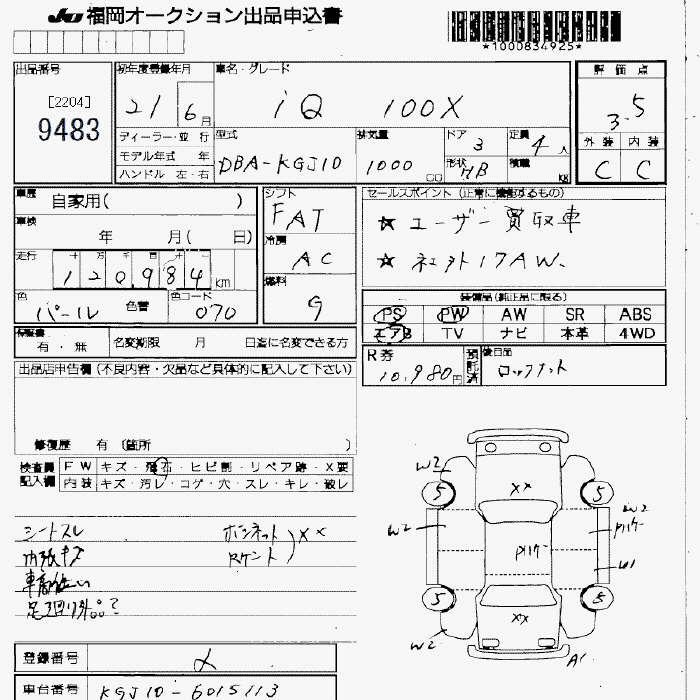 JU 福岡オークション出品申込書
*1000834925*
出品番号 [2204] 9483
初年度登録年月 21 6月
車名・グレード iQ 100X
評価点 3.5
外装 C 内装 C
ディーラー・並行
モデル年式 年
ハンドル 左・右
型式 DBA-KGJ10
排気量 1000 CC
ドア 3
形状 HB
定員 4人
積載 KG
車歴 自家用( )
車検 年 月( 日)
走行 十 万 千 百 十 一 120984 km
色 パール 色替 色コード 070
シフト FAT
冷房 AC
燃料 G
セールスポイント (正常に機能するもの)
☆ ユーザー買取車
☆ 社外17AW.
装備品(純正品に限る)
PS PW AW SR ABS
エアB TV ナビ 本革 4WD
保証書 有・無 名変期限 月 日迄に名変できる方
R券 10,980円 預託済
後日品 ロックナット
出品店申告欄 (不良内容・欠品など具体的に記入して下さい)
修復歴 有 (箇所 )
検査員記入欄
FW キズ・飛石・ヒビ割・リペア跡・X要
内装 キズ・汚レ・コゲ・穴・スレ・キレ・破レ
シートスレ
内張キズ
車高低い
足廻り外品?
ボンネット
Rゲート ) XX
W2
5
XX
5
W2
W2
U1
5
XX
5
W2
A1
登録番号
車台番号 KGJ10-6015113